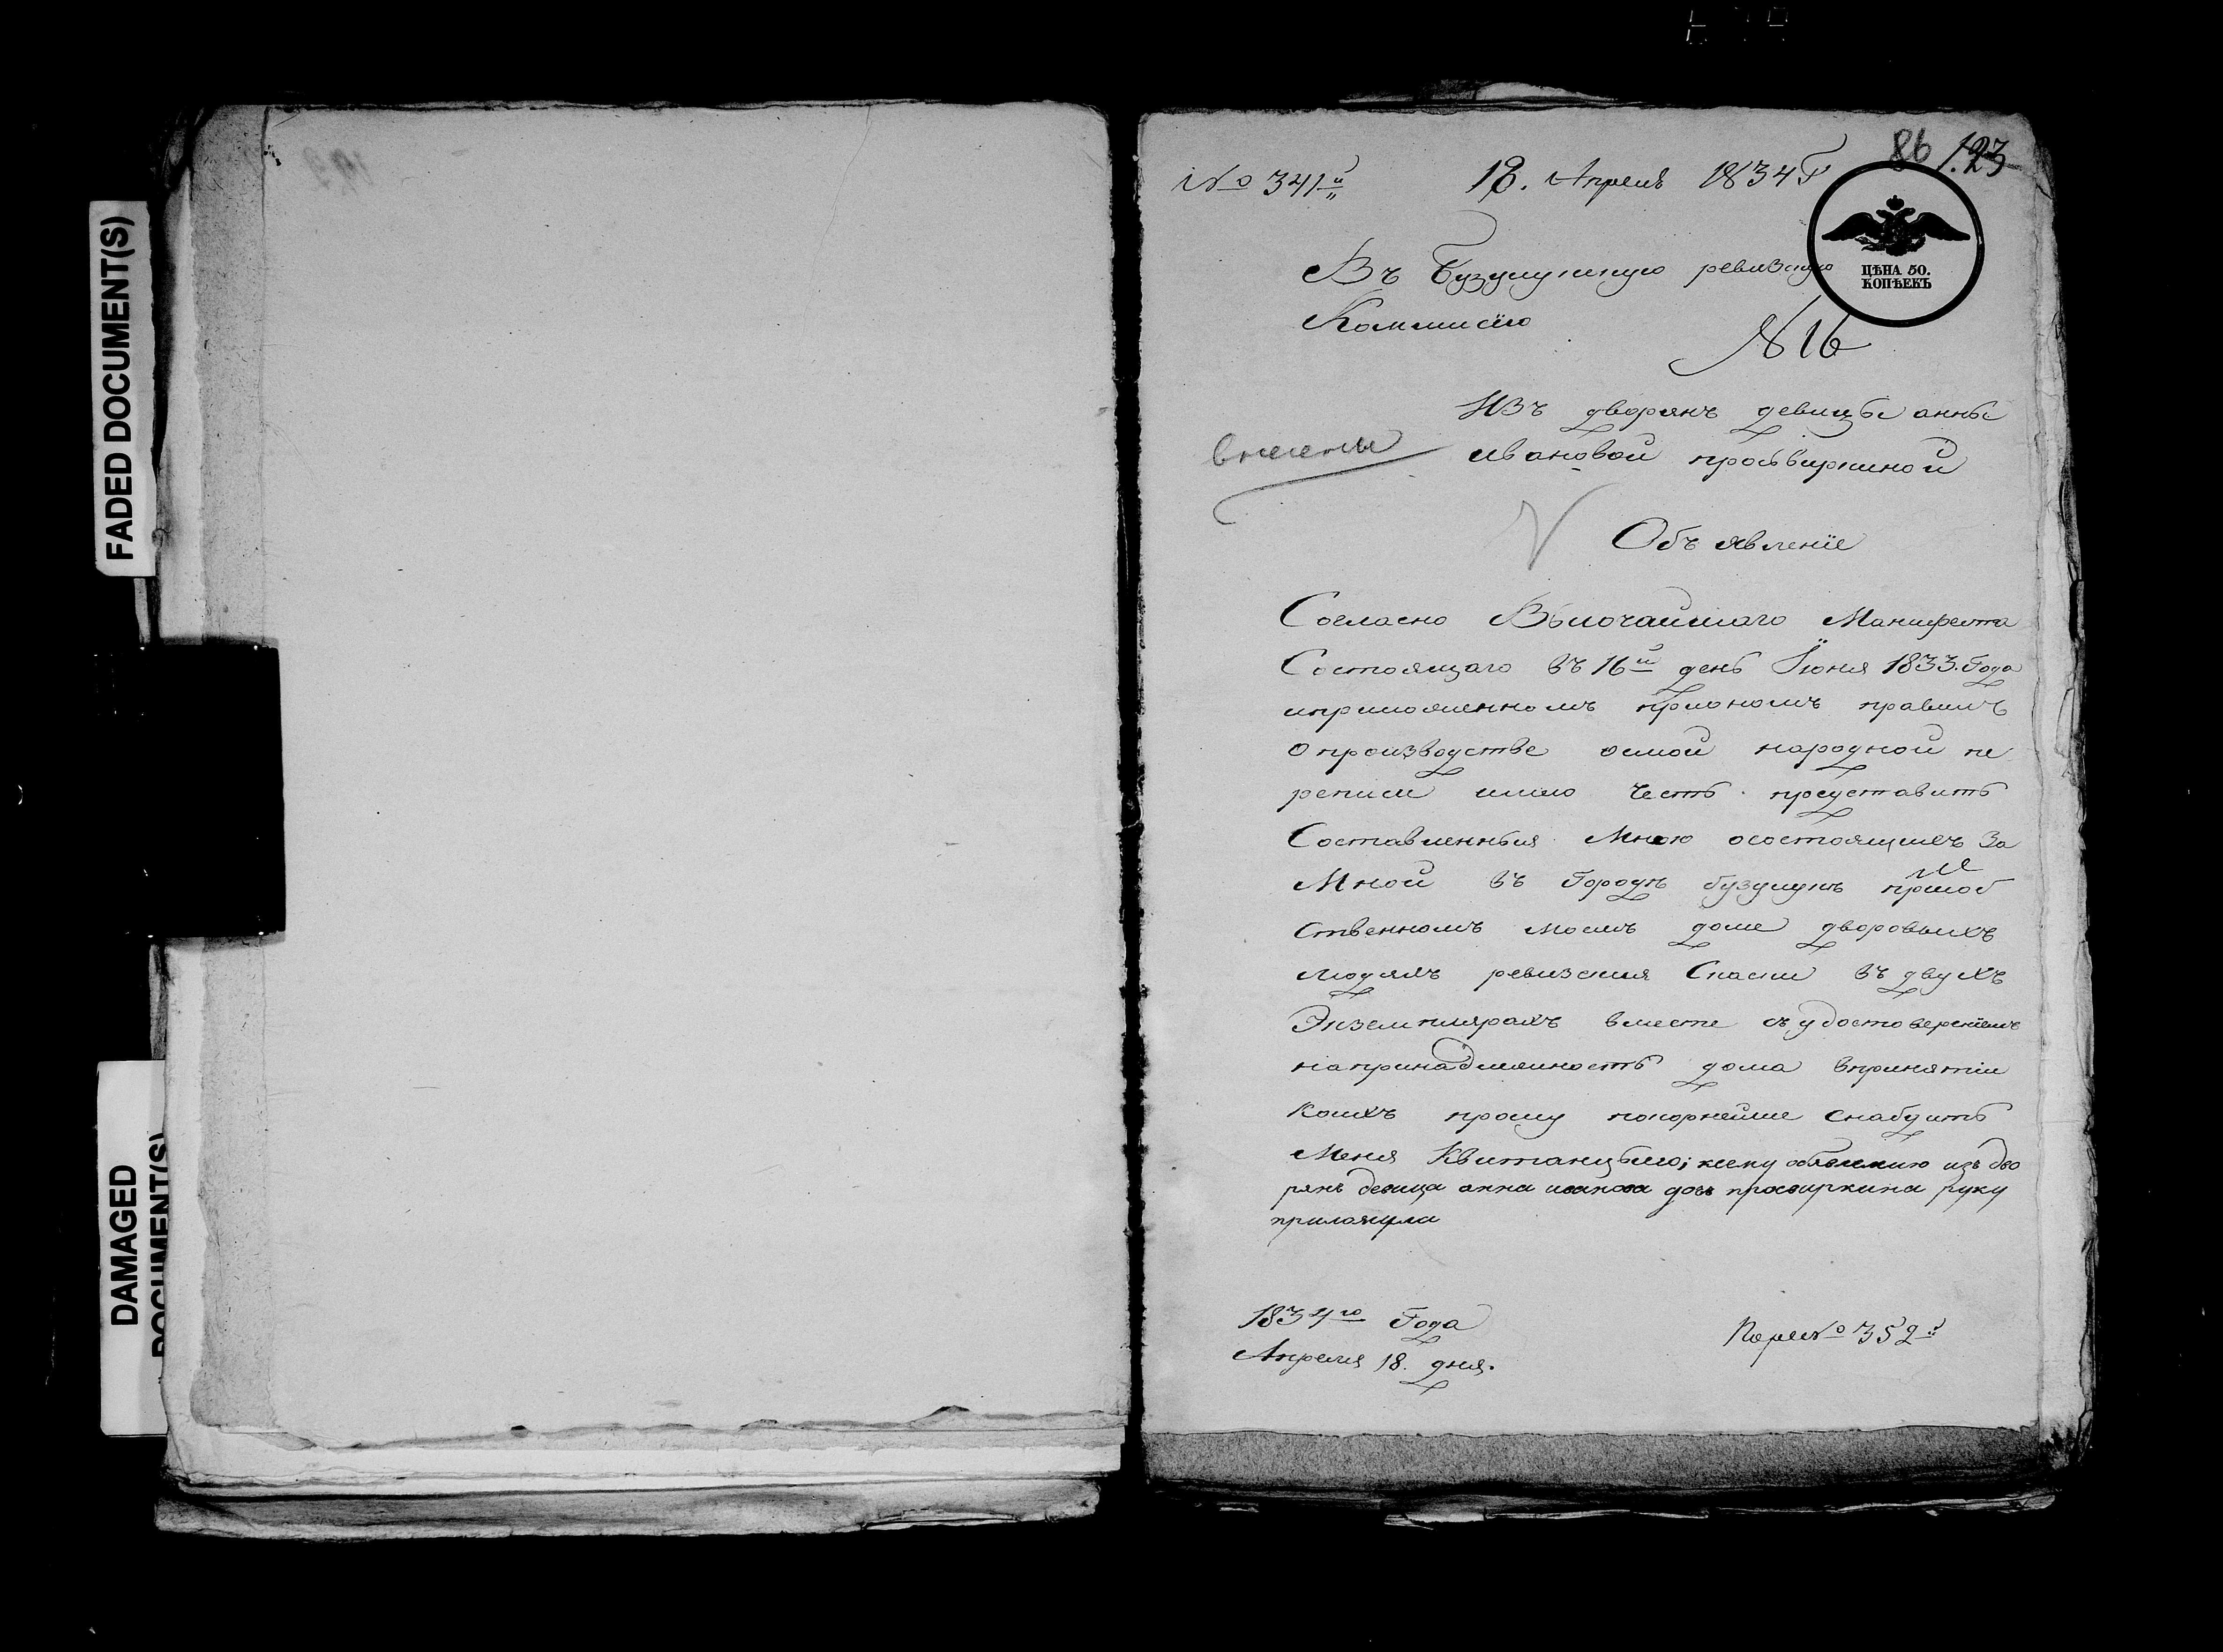 FADED DOCUMENT(S)
DAMAGED
DOCUMENT(S)
86 123
№ 341й 18. Апреля 1834 Г
ЦѢНА 50.
КОПѢЕКЪ
Въ Бузулуцкую ревизскую
Коммисїю
№ 16
Изъ дворянъ девицы анны
внесены
ивановой просвиркиной
Объявленїе
Согласно Высочайшаго Манифеста
Состоящаго въ 16й день Їюня 1833. Года
иприложенномъ приономъ правилъ
опроизводстве осмой народной пе
реписи имею Честь представить
Составленныя Мною осостоящихъ За
Мной въ Городѣ бузулукѣ
ственномъ моемъ доме дворовыхъ
людяхъ ревизския Сказки въ двухъ
Экземплярахъ вместе съудостоверенїемъ
напринадлежность дома впринятїи
коихъ прошу покорнейше снабдить
Меня Квитанцыею; ксему объявлению изъ дво
рянъ девица анна иванова дочь просвиркина руку
приложила
1834го Года
Апреля 18. дня.
№ 352й